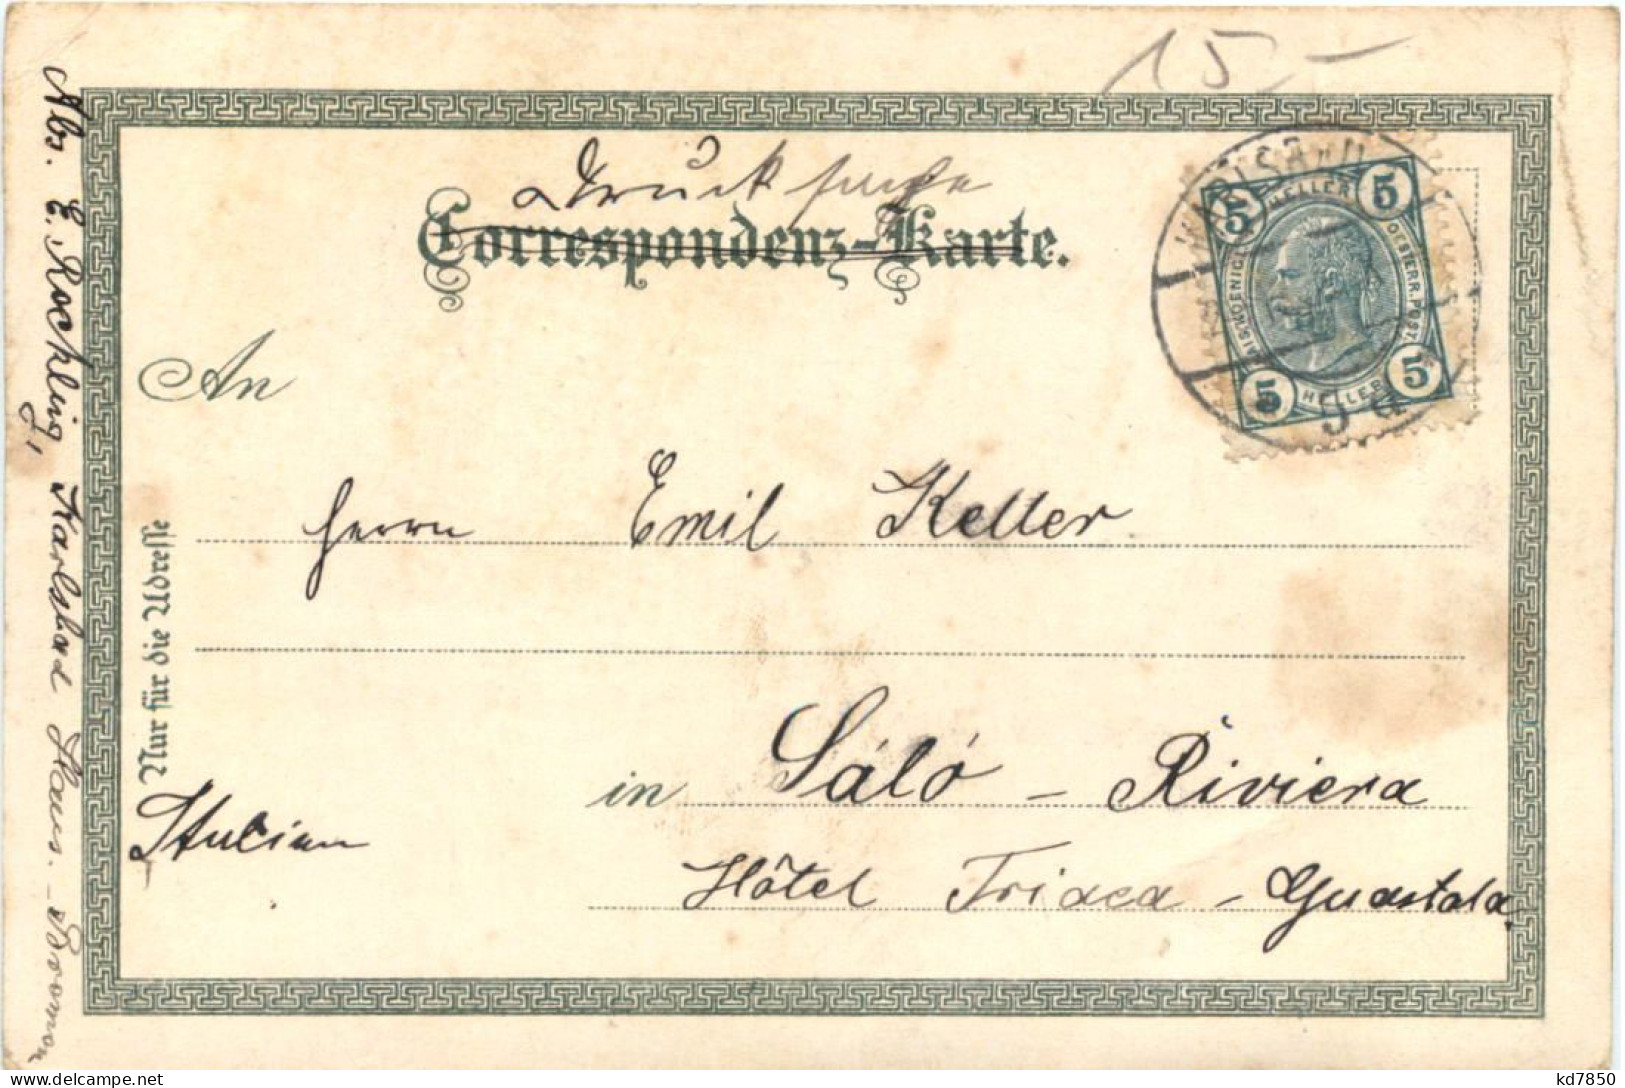 15.–
Drucksache
Correspondenz-Karte.
KARLSBAD
5 HELLER 5
KAIS. KOENIGL. OESTERR. POST
5 HELLER 5
An
Herrn Emil Keller
Nur für die Adresse
in Sáló – Riviera
Italien
Hôtel Triaca – Guastala.
Abs. E. Rochling, Karlsbad Haus.
kd7850